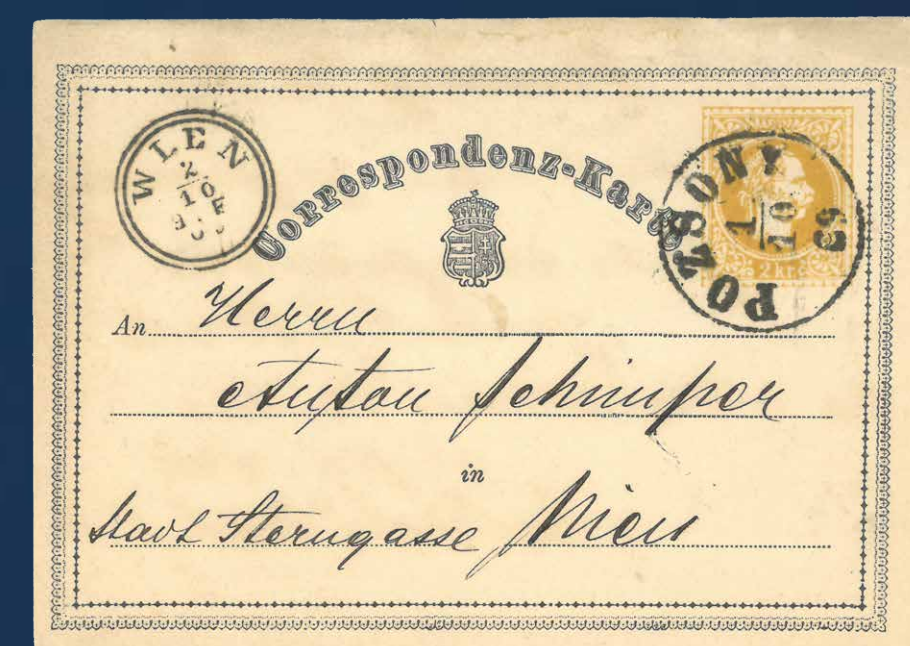 WIEN
2
10
Correspondenz-Karte
POZSONY
1
10
69
2 kr.
An Herrn
Anton Schimper
in
Stadt Sterngasse Wien